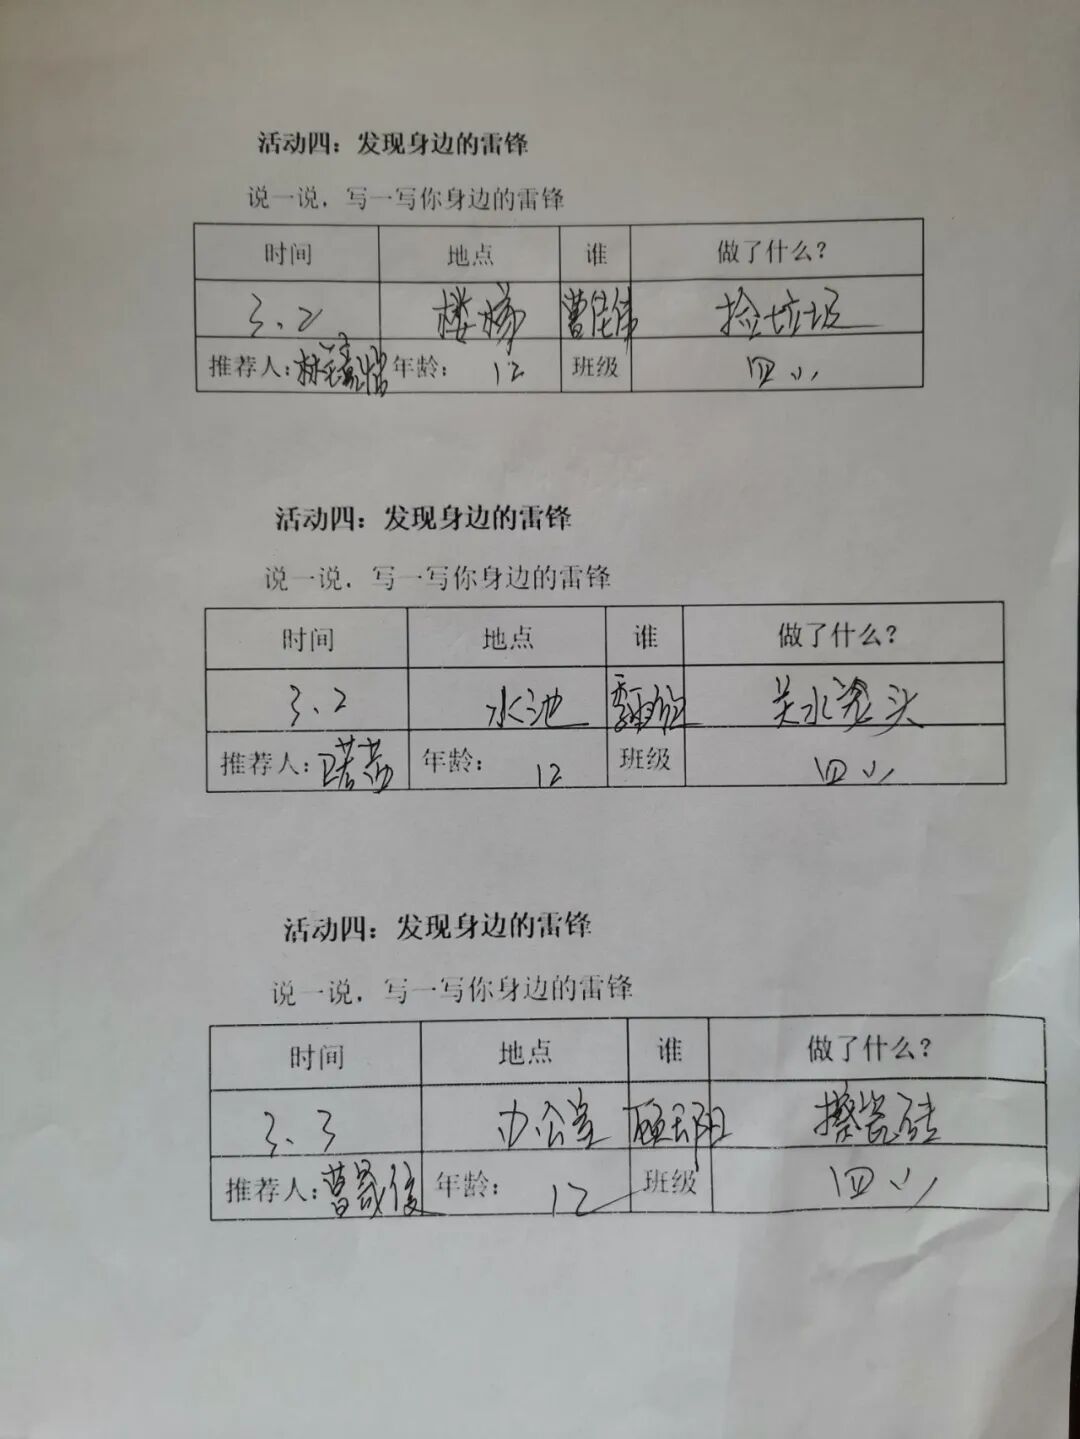 活动四：发现身边的雷锋
说一说，写一写你身边的雷锋
时间 地点 谁 做了什么？
3、2 楼梯 曹佳伟 捡垃圾
推荐人： 年龄： 12 班级 四八
活动四：发现身边的雷锋
说一说，写一写你身边的雷锋
时间 地点 谁 做了什么？
3、2 水池 关水笼头
推荐人： 年龄： 12 班级 四八
活动四：发现身边的雷锋
说一说，写一写你身边的雷锋
时间 地点 谁 做了什么？
3、3 办公室 擦瓷砖
推荐人：曹晟俊 年龄： 12 班级 四八